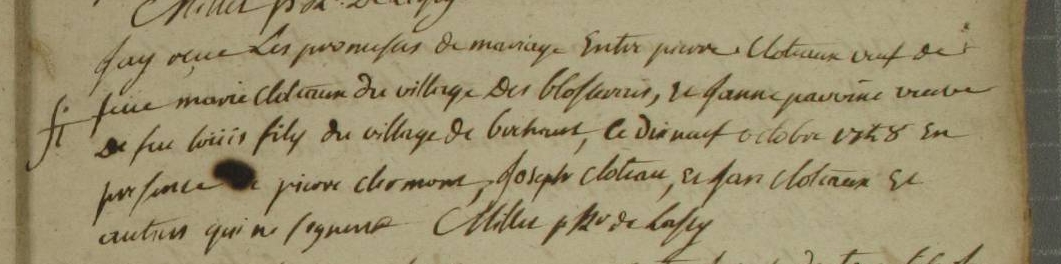 Millet p
Jay reçue Les promesses de mariage Entre pierre Cloteaux veuf de
feue marie Cloteaux du village Des blosteries, Et janne parrine veuve
De feu louis fily du village de berhaut, Ce Dixneuf octobre 1748 En
presence pierre clermont, Joseph Cloteau, Et jan cloteaux Et
autres qui ne signent Millet p de Lassy